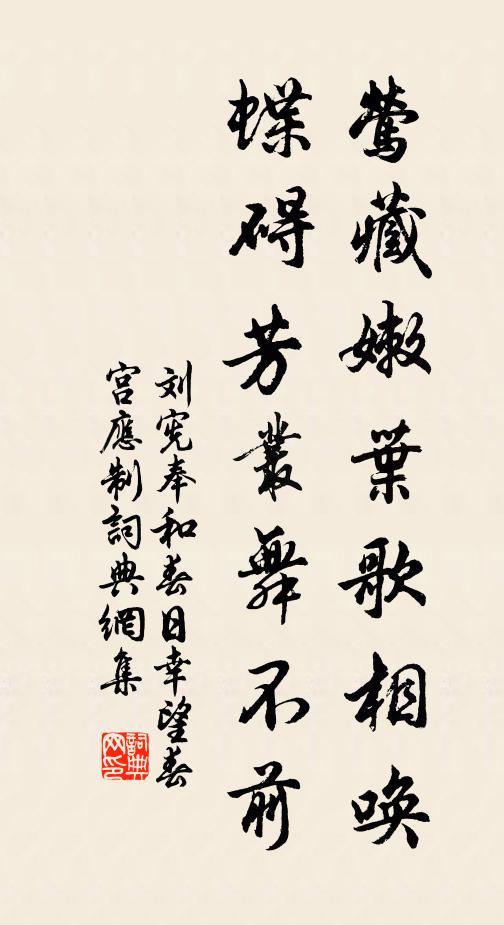 鶯藏嫩葉歌相喚
蝶碍芳叢舞不前
刘宪奉和春日幸望春
宫應制詞典網集
詞典
网印